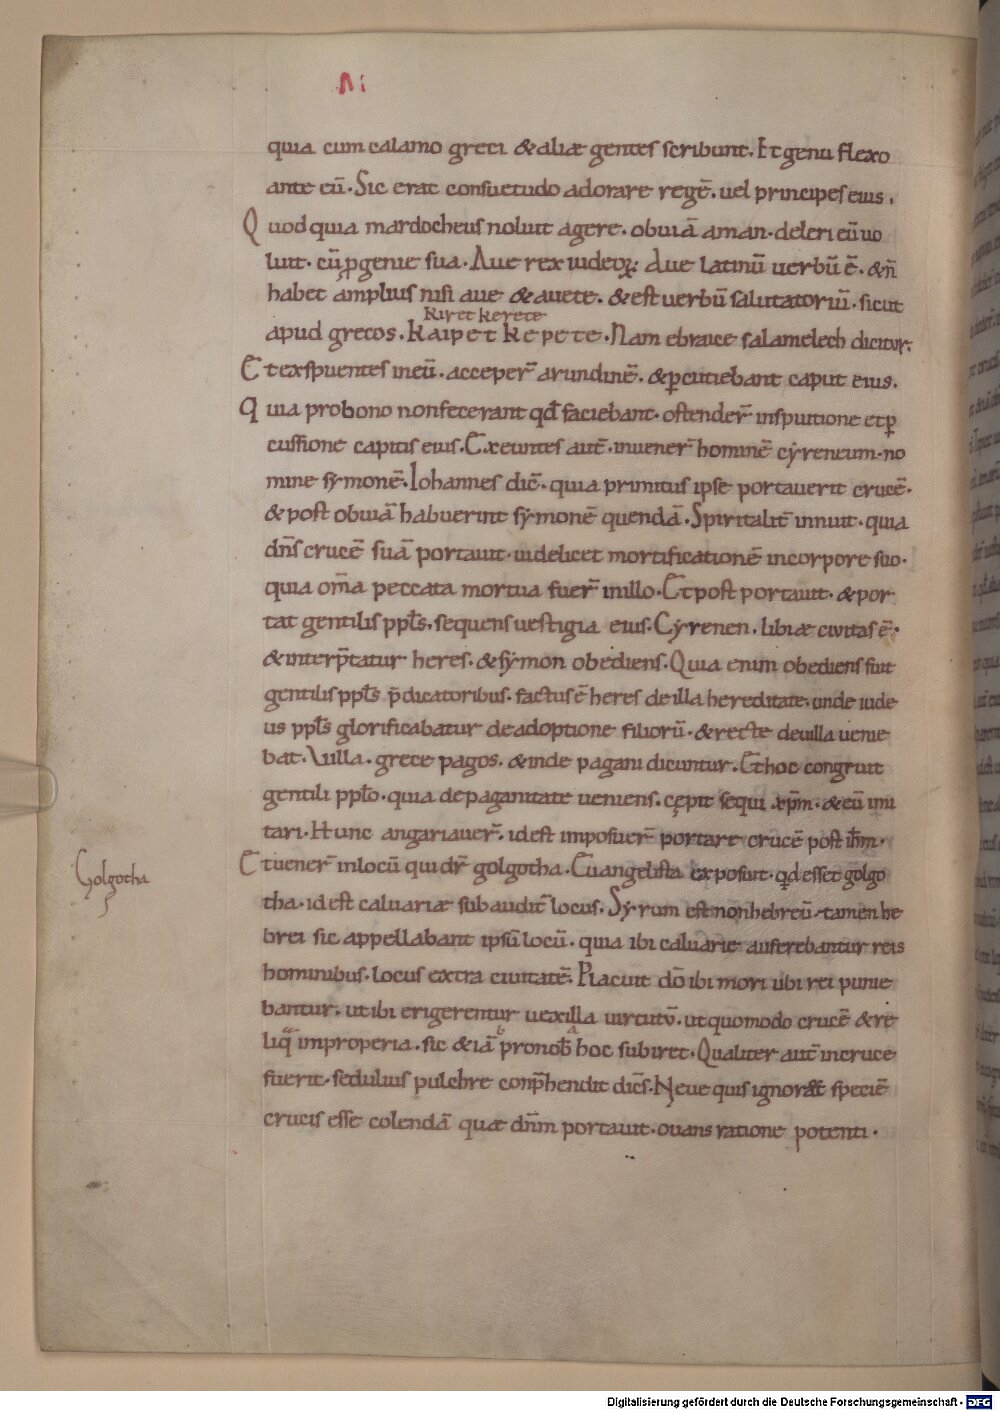 quia cum calamo greci & aliæ gentes scribunt. Et genu flexo
ante eū. Sic erat consuetudo adorare regē. uel principes eius.
Quod quia mardocheus noluit agere. obuiā aman. deleri eū uo
luit. cū ꝓgenie sua. Aue rex iudeoꝝ. Aue latinū uerbū ē. & ñ
habet amplius nisi aue & auete. & est uerbū salutatoriū. sicut
kiret kerete
apud grecos. kaipet kepete. Nam ebraice salamelech dicitur.
Et exspuentes in eū. acceper̄ arundinē. & ꝑcutiebant caput eius.
Quia pro bono non fecerant qđ faciebant. ostender̄ insputione et ꝑ
cussione capitis eius. Exeuntes aut̄. inuener̄ hominē cẏreneum. no
mine sẏmonē. Iohannes dic̄. quia primitus ipse portauerit crucē.
& post obuiā habuerint sẏmonē quendā. Spiritalit̄ innuit. quia
dn̄s crucē suā portauit. uidelicet mortificationē in corpore suo.
quia om̄a peccata mortua fuer̄ in illo. Et post portauit. & por
tat gentilis ppl̄s. sequens uestigia eius. Cẏrenen. libiæ ciuitas ē.
& interp̄tatur heres. & sẏmon obediens. Quia enim obediens fuit
gentilis ppl̄s p̄dicatoribus. factus ē heres de illa hereditate. unde iude
us ppl̄s glorificabatur de adoptione filiorū. & recte de uilla uenie
bat. Uilla. grece pagos. & inde pagani dicuntur. Et hoc congruit
gentili pplo. quia de paganitate ueniens. cępit sequi xp̄m. & eū imi
tari. Hunc angariauer̄. id est imposuer̄ portare crucē post ih̄m.
Et uener̄ in locū qui dr̄ golgotha. Euangelista exposuit. qđ esset golgo
Golgotha
tha. id est caluariæ subaudit̄ locus. Sẏrum est non hebreū. tamen he
brei sic appellabant ipsū locū. quia ibi caluarie auferebantur reis
hominibus. locus extra ciuitatē. Placuit dō ibi mori ubi rei punie
bantur. ut ibi erigerentur uexilla uirtutū. ut quomodo crucē & re
liq̄ improperia. sic & iā pro nob̄ hoc subiret. Qualiter aut̄ in cruce
fuerit. sedulius pulchre conp̄hendit dic̄s. Neue quis ignorat speciē
crucis esse colendā quæ dn̄m portauit. ouans ratione potenti.
Digitalisierung gefördert durch die Deutsche Forschungsgemeinschaft - DFG